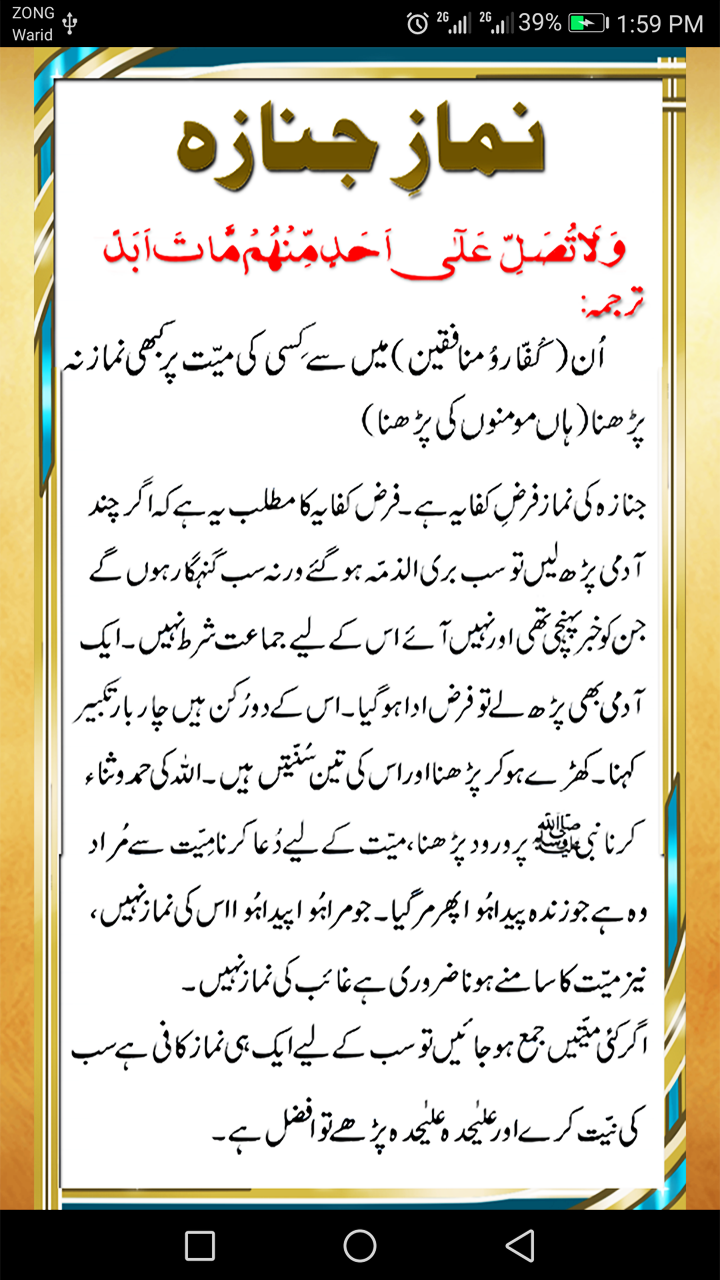 ZONG
Warid
2G 2G 39% 1:59 PM
نمازِ جنازہ
وَلَا تُصَلِّ عَلٰٓی اَحَدٍ مِّنْهُمْ مَّاتَ اَبَدً
ترجمہ:
اُن (کُفّار ؤ منافقین) میں سے کِسی کی میّت پر کبھی نماز نہ
پڑھنا (ہاں مومنوں کی پڑھنا)
جنازہ کی نماز فرضِ کفایہ ہے۔ فرض کفایہ کا مطلب یہ ہے کہ اگر چند
آدمی پڑھ لیں تو سب بری الذمّہ ہو گئے ورنہ سب گنہگار ہوں گے
جن کو خبر پہنچی تھی اور نہیں آئے اس کے لیے جماعت شرط نہیں۔ ایک
آدمی بھی پڑھ لے تو فرض ادا ہو گیا۔ اس کے دو رُکن ہیں چار بار تکبیر
کہنا۔ کھڑے ہو کر پڑھنا اور اس کی تین سُنّتیں ہیں۔ اللہ کی حمد و ثناء
کرنا نبی ﷺ پر ورود پڑھنا، میّت کے لیے دُعا کرنا مِیّت سے مُراد
وہ ہے جو زندہ پیدا ہُو ا پھر مر گیا۔ جو مرا ہُو ا پیدا ہُو ا اس کی نماز نہیں،
نیز میّت کا سامنے ہونا ضروری ہے غائب کی نماز نہیں۔
اگر کئی میّتیں جمع ہو جائیں تو سب کے لیے ایک ہی نماز کافی ہے سب
کی نیّت کرے اور علیٰحدہ علیٰحدہ پڑھے تو افضل ہے۔